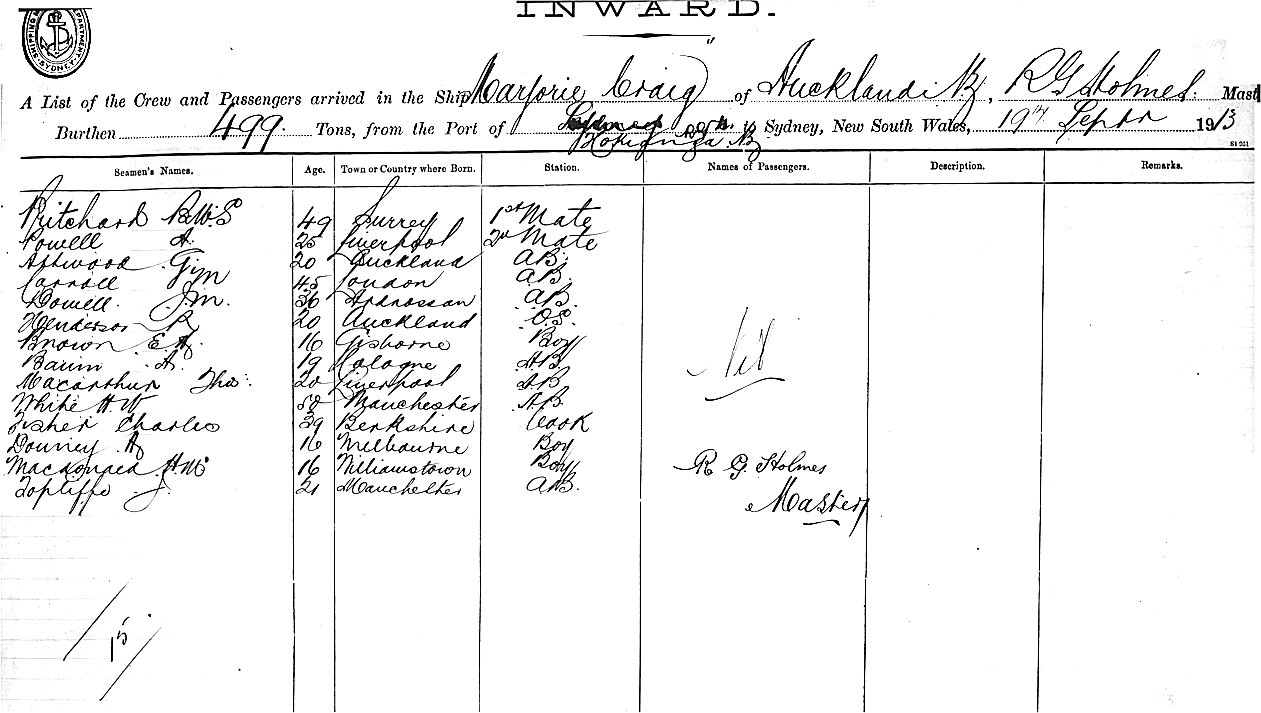 INWARD.
SHIPPING DEPARTMENT SYDNEY
A List of the Crew and Passengers arrived in the Ship Marjorie Craig of Auckland NZ, R G Holmes. Mast
Burthen 499. Tons, from the Port of Hokianga NZ to Sydney, New South Wales, 19th Septr 1913
Seamen's Names. Age. Town or Country where Born. Station. Names of Passengers. Description. Remarks.
Pritchard 49 Surrey 1st Mate
Powell A. 25 Liverpool 2d Mate
Attwood 20 Auckland AB.
Carroll 45 London AB.
Dowell. J.M. 36 Ardrossan AB.
Henderson R 20 Auckland O.S.
Brown E A. 16 Gisborne Boy
Baum A. 19 Cologne A.B.
Macarthur Thos. 20 Liverpool A.B.
Nil
White H W 50 Manchester A.B.
Fisher Charles 39 Berkshire Cook
Downey A 16 Melbourne Boy
Macdonald H. 16 Williamstown Boy
R G. Holmes
Topliffe J. 21 Manchester AB.
Master
15